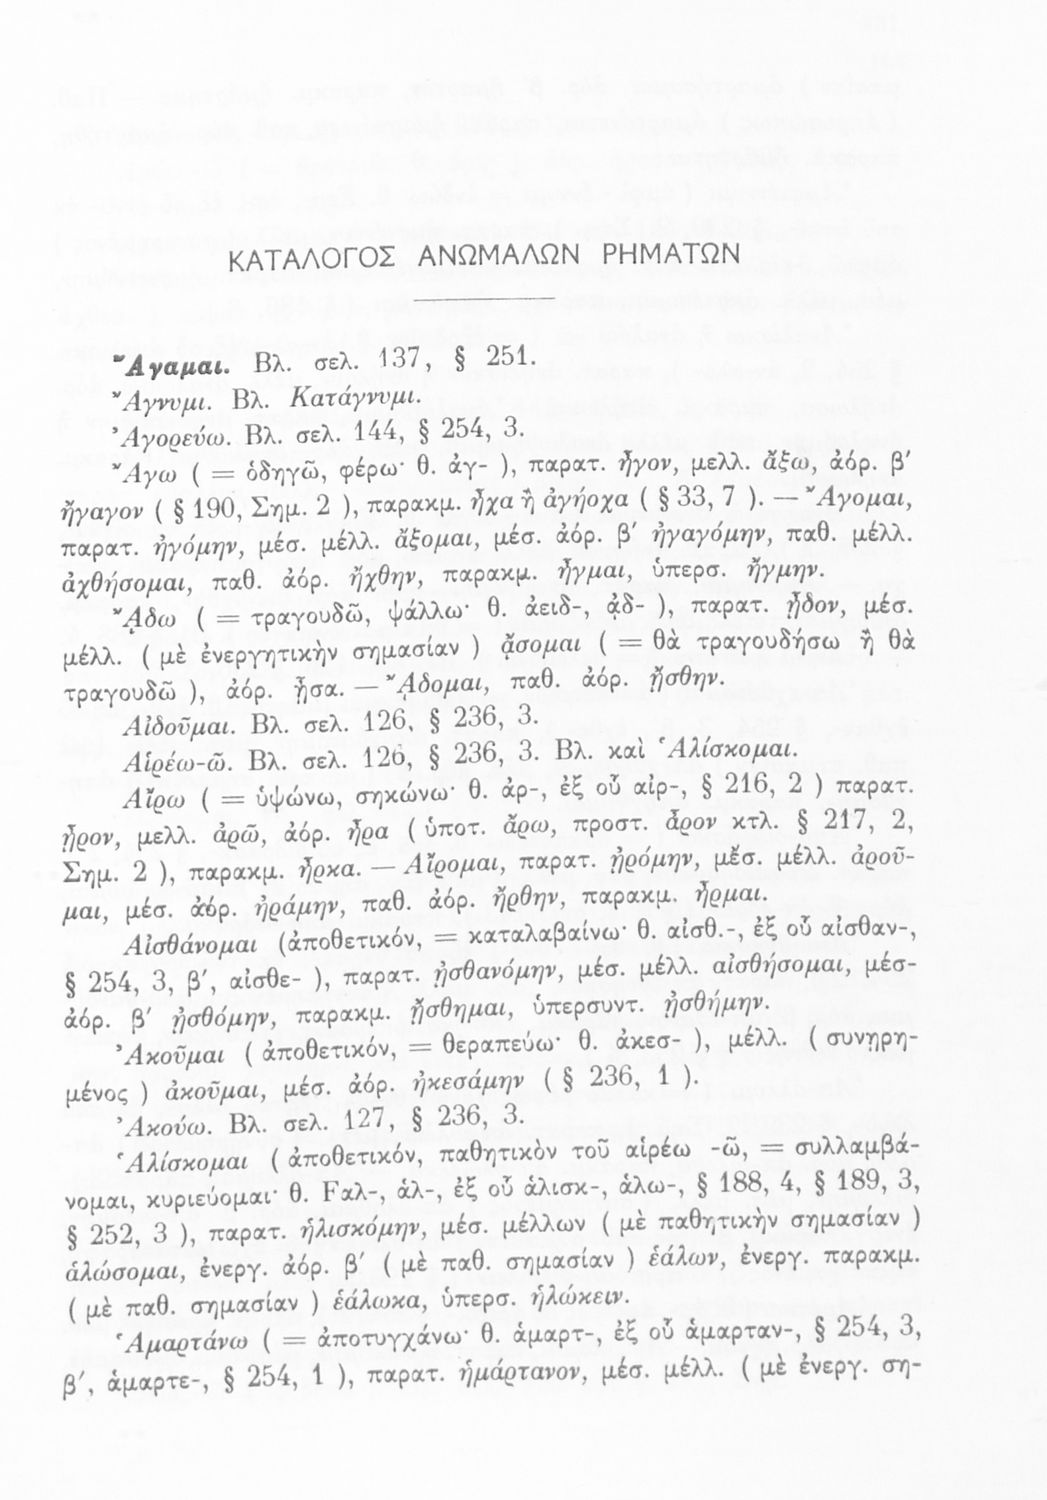 ΚΑΤΑΛΟΓΟΣ ΑΝΩΜΑΛΩΝ ΡΗΜΑΤΩΝ
Ἄγαμαι. Βλ. σελ. 137, § 251.
Ἄγνυμι. Βλ. Κατάγνυμι.
Ἀγορεύω. Βλ. σελ. 144, § 254, 3.
Ἄγω ( = ὁδηγῶ, φέρω· θ. ἀγ- ), παρατ. ἦγον, μελλ. ἄξω, ἀόρ. β′
ἤγαγον ( § 190, Σημ. 2 ), παρακμ. ἦχα ἢ ἀγήοχα ( § 33, 7 ). — Ἄγομαι,
παρατ. ἠγόμην, μέσ. μέλλ. ἄξομαι, μέσ. ἀόρ. β′ ἠγαγόμην, παθ. μέλλ.
ἀχθήσομαι, παθ. ἀόρ. ἤχθην, παρακμ. ἦγμαι, ὑπερσ. ἤγμην.
ᾌδω ( = τραγουδῶ, ψάλλω· θ. ἀειδ-, ᾀδ- ), παρατ. ᾖδον, μέσ.
μέλλ. ( μὲ ἐνεργητικὴν σημασίαν ) ᾄσομαι ( = θὰ τραγουδήσω ἢ θὰ
τραγουδῶ ), ἀόρ. ᾖσα. — ᾌδομαι, παθ. ἀόρ. ᾔσθην.
Αἰδοῦμαι. Βλ. σελ. 126, § 236, 3.
Αἱρέω-ῶ. Βλ. σελ. 126, § 236, 3. Βλ. καὶ Ἁλίσκομαι.
Αἴρω ( = ὑψώνω, σηκώνω· θ. ἀρ-, ἐξ οὗ αἰρ-, § 216, 2 ) παρατ.
ᾖρον, μελλ. ἀρῶ, ἀόρ. ἦρα ( ὑποτ. ἄρω, προστ. ἆρον κτλ. § 217, 2,
Σημ. 2 ), παρακμ. ἦρκα. — Αἴρομαι, παρατ. ᾐρόμην, μέσ. μέλλ. ἀροῦ-
μαι, μέσ. ἀόρ. ἠράμην, παθ. ἀόρ. ἤρθην, παρακμ. ἦρμαι.
Αἰσθάνομαι (ἀποθετικόν, = καταλαβαίνω· θ. αἰσθ.-, ἐξ οὗ αἰσθαν-,
§ 254, 3, β′, αἰσθε- ), παρατ. ᾐσθανόμην, μέσ. μέλλ. αἰσθήσομαι, μέσ-
ἀόρ. β′ ᾐσθόμην, παρακμ. ᾔσθημαι, ὑπερσυντ. ᾐσθήμην.
Ἀκοῦμαι ( ἀποθετικόν, = θεραπεύω· θ. ἀκεσ- ), μέλλ. ( συνῃρη-
μένος ) ἀκοῦμαι, μέσ. ἀόρ. ἠκεσάμην ( § 236, 1 ).
Ἀκούω. Βλ. σελ. 127, § 236, 3.
Ἁλίσκομαι ( ἀποθετικόν, παθητικὸν τοῦ αἱρέω -ῶ, = συλλαμβά-
νομαι, κυριεύομαι· θ. Fαλ-, ἁλ-, ἐξ οὗ ἁλισκ-, ἁλω-, § 188, 4, § 189, 3,
§ 252, 3 ), παρατ. ἡλισκόμην, μέσ. μέλλων ( μὲ παθητικὴν σημασίαν )
ἁλώσομαι, ἐνεργ. ἀόρ. β′ ( μὲ παθ. σημασίαν ) ἑάλων, ἐνεργ. παρακμ.
( μὲ παθ. σημασίαν ) ἑάλωκα, ὑπερσ. ἡλώκειν.
Ἁμαρτάνω ( = ἀποτυγχάνω· θ. ἁμαρτ-, ἐξ οὗ ἁμαρταν-, § 254, 3,
β′, ἁμαρτε-, § 254, 1 ), παρατ. ἡμάρτανον, μέσ. μέλλ. ( μὲ ἐνεργ. ση-